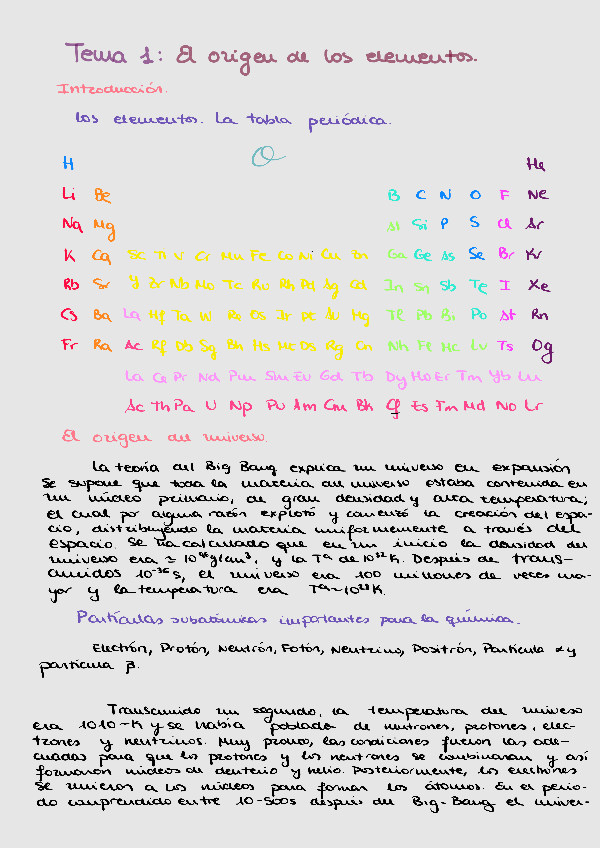 Tema 1: El origen de los elementos.
Introducción.
Los elementos. La tabla periódica.
H He
Li Be B C N O F Ne
Na Mg Al Si P S Cl Ar
K Ca Sc Ti V Cr Mn Fe Co Ni Cu Zn Ga Ge As Se Br Kr
Rb Sr Y Zr Nb Mo Tc Ru Rh Pd Ag Cd In Sn Sb Te I Xe
Cs Ba La Hf Ta W Re Os Ir Pt Au Hg Tl Pb Bi Po At Rn
Fr Ra Ac Rf Db Sg Bh Hs Mt Ds Rg Cn Nh Fl Mc Lv Ts Og
La Ce Pr Nd Pm Sm Eu Gd Tb Dy Ho Er Tm Yb Lu
Ac Th Pa U Np Pu Am Cm Bk Cf Es Fm Md No Lr
El origen del universo.
La teoría del Big Bang explica un universo en expansión
Se supone que toda la materia del universo estaba contenida en
un núcleo primario, de gran densidad y alta temperatura;
el cual por alguna razón explotó y comenzó la creación del espa-
cio, distribuyendo la materia uniformemente a través del
espacio. Se ha calculado que en un inicio la densidad del
universo era ≈ 10⁹⁶g/cm³, y la Tª de 10³²K. Después de trans-
curridos 10⁻³⁶s, el universo era 100 millones de veces ma-
yor y la temperatura era Tª~10²⁸K.
Partículas subatómicas importantes para la química.
Electrón, Protón, Neutrón, Fotón, Neutrino, Positrón, Partícula α y
partícula β.
Transcurrido un segundo, la temperatura del universo
era 1010-K y se había poblado de nutrones, protones, elec-
trones y neutrinos. Muy pronto, las condiciones fueron las ade-
cuadas para que los protones y los neutrones se combinaran y así
formaron núcleos de deuterio y helio. Posteriormente, los electrones
se unieron a los núcleos para formar los átomos. En el perio-
do comprendido entre 10-500s después del Big-Bang el univer-